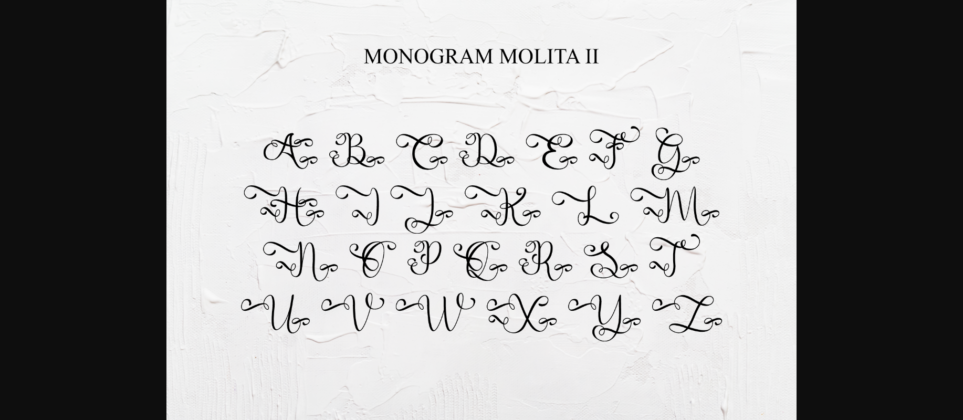 MONOGRAM MOLITA II
A B C D E F G
H I J K L M
N O P Q R S T
U V W X Y Z